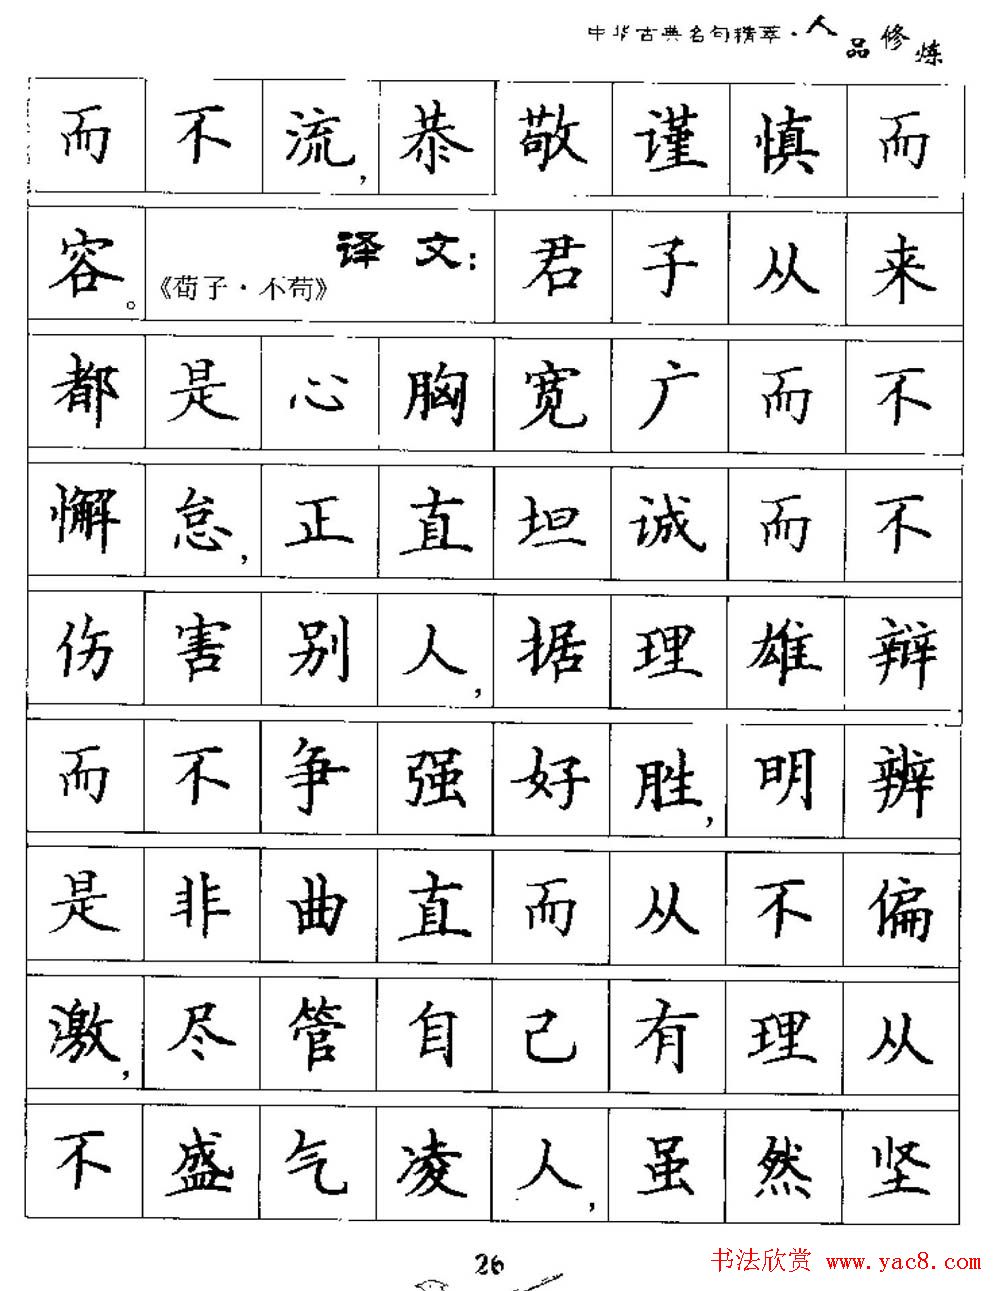 中华古典名句精萃·人品修炼
而不流，恭敬谨慎而
容。《荀子·不苟》译文：君子从来
都是心胸宽广而不
懈怠，正直坦诚而不
伤害别人，据理雄辩
而不争强好胜，明辨
是非曲直而从不偏
激，尽管自己有理从
不盛气凌人，虽然坚
26
书法欣赏 www.yac8.com